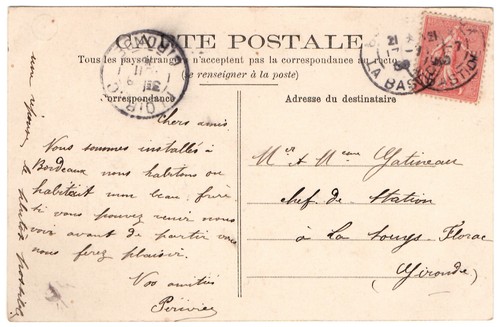 CARTE POSTALE
Tous les pays étrangers n'acceptent pas la correspondance au recto
(se renseigner à la poste)
Correspondance
Adresse du destinataire
Chers amis
Nous sommes installés à
Bordeaux nous habitons ou
habitait mon beau frère
si vous pouvez venir nous
voir avant de partir vous
nous ferez plaisir.
Vos amitiés
une réponse le plutôt possible
Mr & Mme Gatineau
chef de Station
à La
(Gironde)
LA BASTIDE